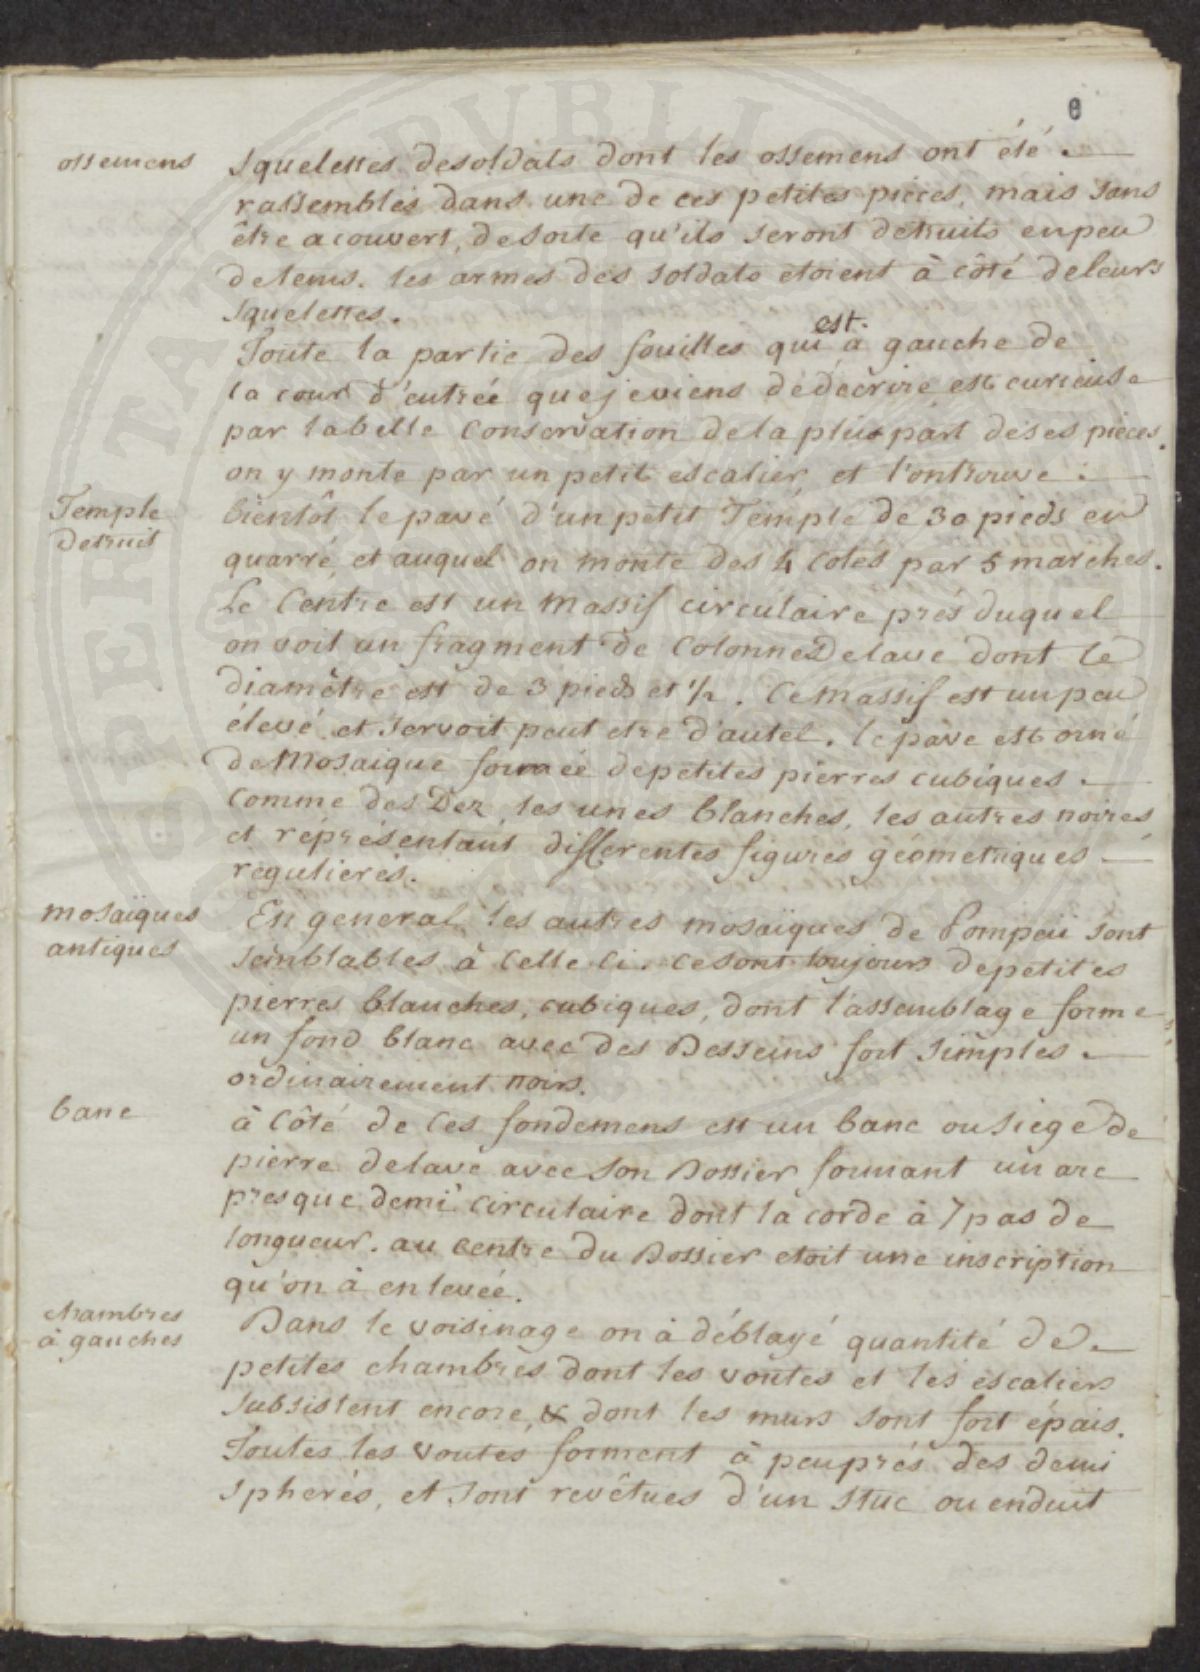 8
ossemens
squelettes de soldats dont les ossemens ont été
rassemblés dans une de ces petites pièces, mais sans
être a couvert, de sorte qu'ils seront detruits en peu
de tems. les armes des soldats etoient à côté de leurs
squelettes.
Toute la partie des fouilles qui est à gauche de
la cour d'entrée que je viens de décrire est curieuse
par la belle conservation de la plus part de ses pièces.
on y monte par un petit escalier et l'on trouve
Temple
detruit
bientôt le pavé d'un petit Temple de 30 pieds en
quarré, et auquel on monte des 4 cotés par 5 marches.
Le Centre est un massif circulaire prés duquel
on voit un fragment de Colonne de lave dont le
diamètre est de 3 pieds et 1/2. Ce massif est un peu
élevé et servoit peut etre d'autel. le pavé est orné
de Mosaique formée de petites pierres cubiques
comme des Dez, les unes blanches, les autres noires
et réprésentant differentes figures géometriques
regulieres.
mosaïques
antiques
En general les autres mosaïques de Pompeii sont
semblables à celle ci. ce sont toujours de petites
pierres blanches, cubiques, dont l'assemblage forme
un fond blanc avec des Desseins fort simples
ordinairement noirs.
banc
à côté de ces fondemens est un banc ou siege de
pierre de lave avec son Dossier formant un arc
presque demi circulaire dont la corde à 7 pas de
longueur. au centre du Dossier etoit une inscription
qu'on à enlevée.
chambres
à gauches
Dans le voisinage on à déblayé quantité de
petites chambres dont les voutes et les escaliers
subsistent encore, & dont les murs sont fort épais.
Toutes les voutes forment à peuprés des demi
spheres, et sont revêtues d'un stuc ou enduit
SPERITATE PUBLIC